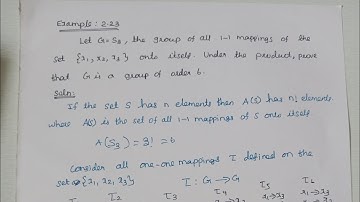 Example: 2.23
Let G = S₃, the group of all 1-1 mappings of the
set {x₁, x₂, x₃} onto itself. Under the product, prove
that G is a group of order 6.
Soln:
If the set S has n elements then A(S) has n! elements
where A(S) is the set of all 1-1 mappings of S onto itself
A(S₃) = 3! = 6
Consider all one-one mappings τ defined on the
set {x₁, x₂, x₃} τ : G → G
τ₃ τ₄ τ₅